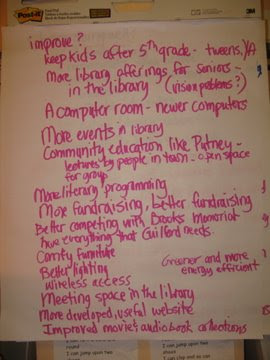 Post-it
improve?
keep kids after 5th grade - tweens, YA
More library offerings for seniors -
in the library (vision problems?)
A computer room - newer computers
More events in library
Community education like Putney -
lectures by people in town - open space
for group
More literary programming
More fundraising, better fundraising
Better competing with Brooks Memorial
have everything that Guilford needs.
Comfy furniture
Better lighting
Greener and more
energy efficient
wireless access
Meeting space in the library
More developed, useful website
Improved movie & audiobook collections
I can jump upon two